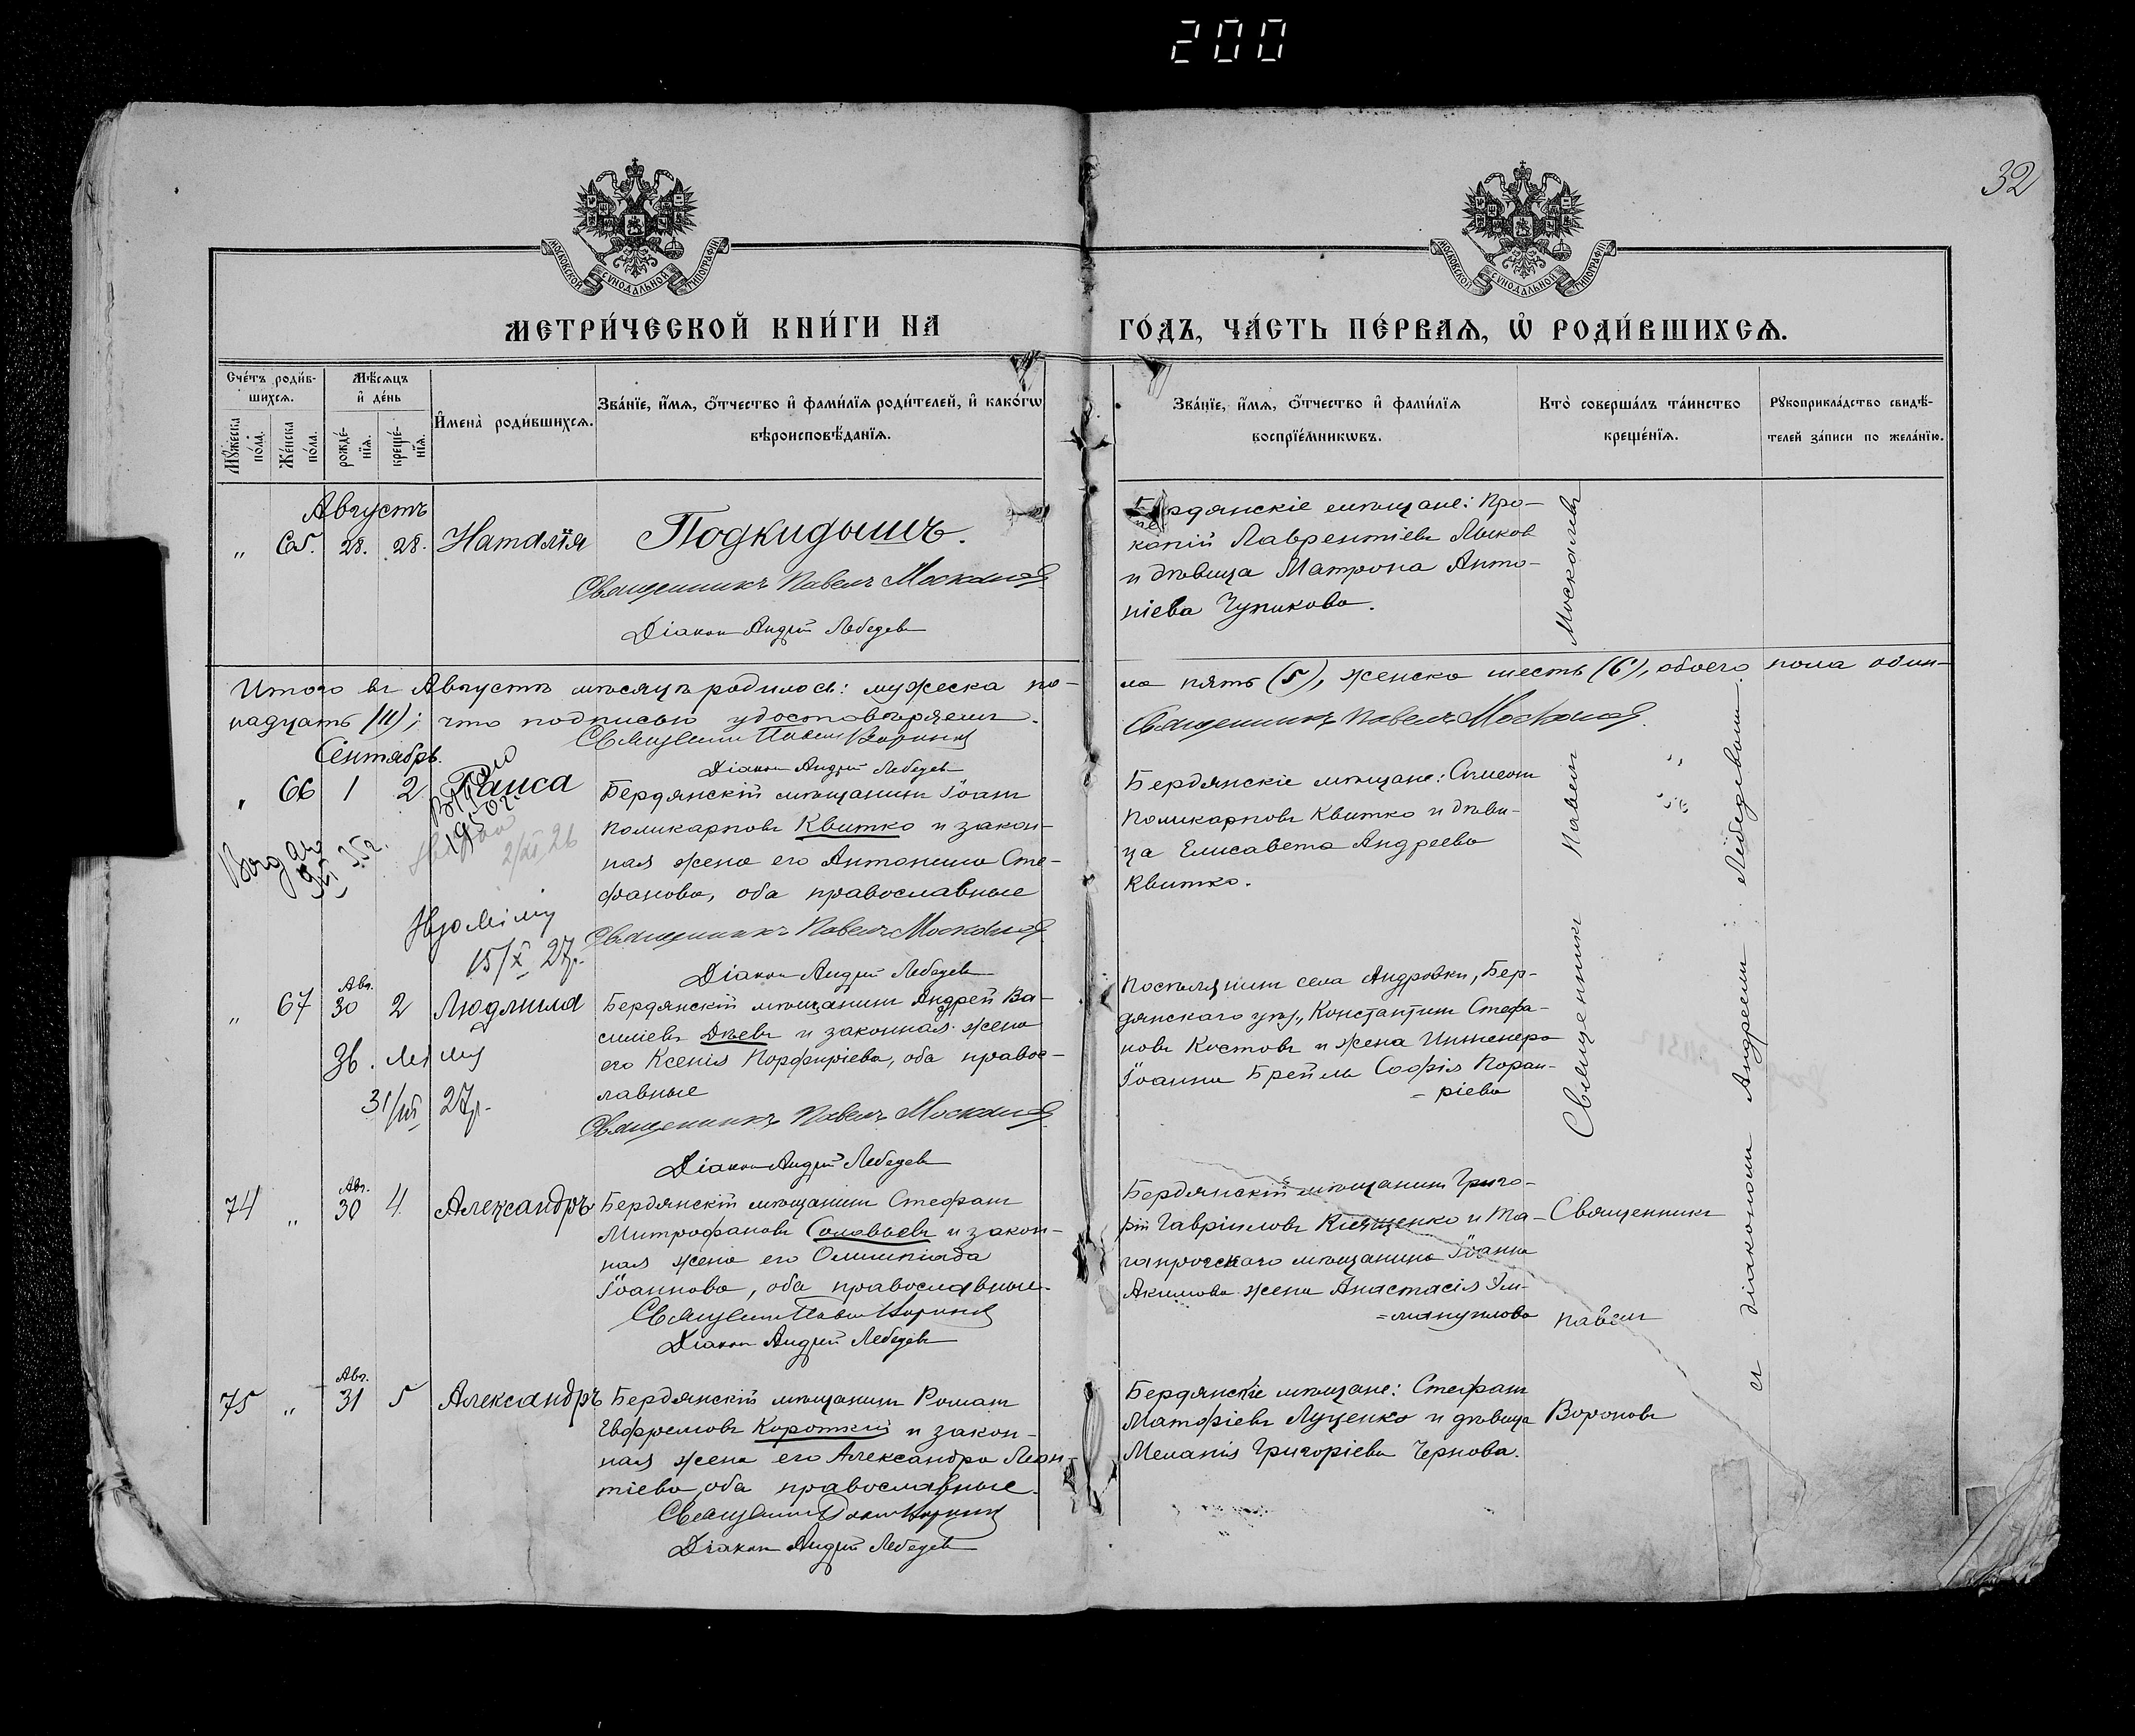 200
32
МОСКОВСКОЙ СѴНОДАЛЬНОЙ ТИПОГРАФІИ
МОСКОВСКОЙ СѴНОДАЛЬНОЙ ТИПОГРАФІИ
МЕТРИ́ЧЕСКОЙ КНИ́ГИ НА
ГО́ДЪ, ЧА́СТЬ ПЕ́РВАѦ, Ѡ҆ РОДИ́ВШИХСѦ.
Сче́тъ роди́в-
шихсѧ.
Мꙋ́жеска по́ла.
Же́нска по́ла.
Мѣ́сѧцъ
и҆ де́нь
рожде́-
нїѧ.
креще́-
нїѧ.
И҆мена̀ роди́вшихсѧ.
Зва́нїе, и҆́мѧ, ѻ҆́тчество и҆ фами́лїѧ роди́телей, и҆ како́гѡ
вѣроисповѣ́данїѧ.
Зва́нїе, и҆́мѧ, ѻ҆́тчество и҆ фами́лїѧ
воспрїе́мникѡвъ.
Кто̀ соверша́лъ та́инство
креще́нїѧ.
Рꙋкоприкла́дство свидѣ́-
телей за́писи по жела́нїю.
Августъ
„ 65. 28. 28. Наталія Подкидышъ.
Священникъ Павелъ Москалевъ
Діаконъ Андрей Лебедевъ
Бердянскіе мѣщане: Про-
копій Лаврентіевъ Лысков
и дѣвица Матрона Анто-
ніева Чупикова.
Итого въ Августѣ мѣсяцѣ родилось: мужеска по-
ла пять (5), женска шесть (6), обоего пола один-
надцать (11); что подписью удостовѣряемъ.
Священникъ Павелъ Воронов
Священникъ Павелъ Москалев
Діаконъ Андрей Лебедевъ
Сентябрь.
„ 66 1 2 Таиса
Бердянскій мѣщанинъ Іоаннъ
Поликарповъ Квитко и закон-
ная жена его Антонина Сте-
фанова, оба православные
Священникъ Павелъ Москалев
Діаконъ Андрей Лебедевъ
1950г.
2/XI 26
15/X 27г.
Бердянскіе мѣщане: Симеонъ
Поликарповъ Квитко и дѣви-
ца Елисавета Андреева
Квитко.
Авг.
„ 67 30 2 Людмила
Бердянскій мѣщанинъ Андрей Ва-
силіевъ Дѣевъ и законная жена
его Ксенія Порфиріева, оба правос-
лавные
Священникъ Павелъ Москалев
Діаконъ Андрей Лебедевъ
27г.
Поселянинъ села Андровки, Бер-
дянскаго уѣз., Константинъ Стефа-
новъ Костовъ и жена Инженера
Іоанна Брейль Софія Порфи-
= ріева
Авг.
74 „ 30 4 Александръ
Бердянскій мѣщанинъ Стефанъ
Митрофановъ Соловьевъ и закон-
ная жена его Олимпіада
Іоаннова, оба православные.
Священникъ Павелъ Воронов
Діаконъ Андрей Лебедевъ
Бердянскій мѣщанинъ Григо-
рій Гавріиловъ Кіященко и Та-
ганрогскаго мѣщанина Іоанна
Акимова жена Анастасія Эм-
=мануилова
Авг.
75 „ 31 5 Александръ
Бердянскій мѣщанинъ Романъ
Евфремовъ Короткій и закон-
ная жена его Александра Леон-
тіева, оба православные.
Священникъ Павелъ Воронов
Діаконъ Андрей Лебедевъ
Бердянскіе мѣщане: Стефанъ
Матфіевъ Луценко и дѣвица
Меланія Григоріева Чернова.
Священникъ Павелъ Москалевъ
Священникъ
Павелъ
Вороновъ
и діакономъ Андреемъ Лебедевымъ